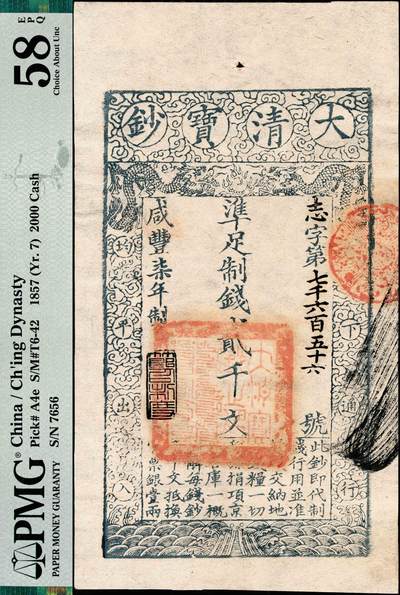 PMG®
PAPER MONEY GUARANTY
China / Ch'ing Dynasty
Pick# A4e S/M#T6-42 1857 (Yr. 7) 2000 Cash
S/N 7656
58
EPQ
Choice About Unc
大清寶鈔
下通行
志字第七千六百五十六號
準足制錢貳千文
咸豐柒年製
均平出入
此鈔即代制
行用並准
交納地
糧一切
捐項京
庫一概
每錢鈔
文抵換
票銀
兩